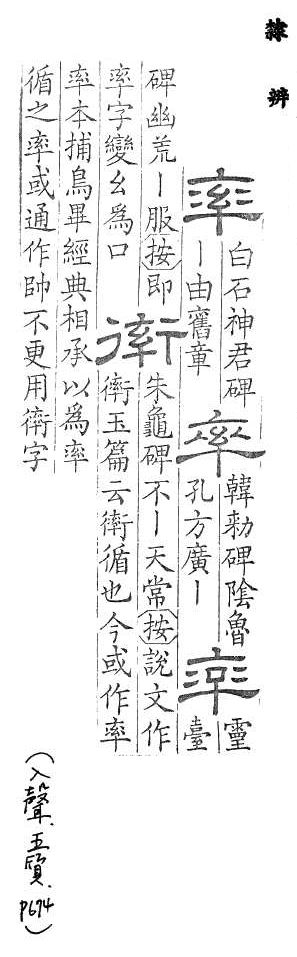 隸辨
率
白石神君碑
丨由舊章
率
韓勑碑陰魯
孔方廣丨
率
靈
臺
碑幽荒丨服按即
率字變幺為口
䘗
朱龜碑不丨天常按說文作
䘗玉篇云䘗循也今或作率
率本捕鳥畢經典相承以為率
循之率或通作帥不更用䘗字
(入聲、五質、P674)